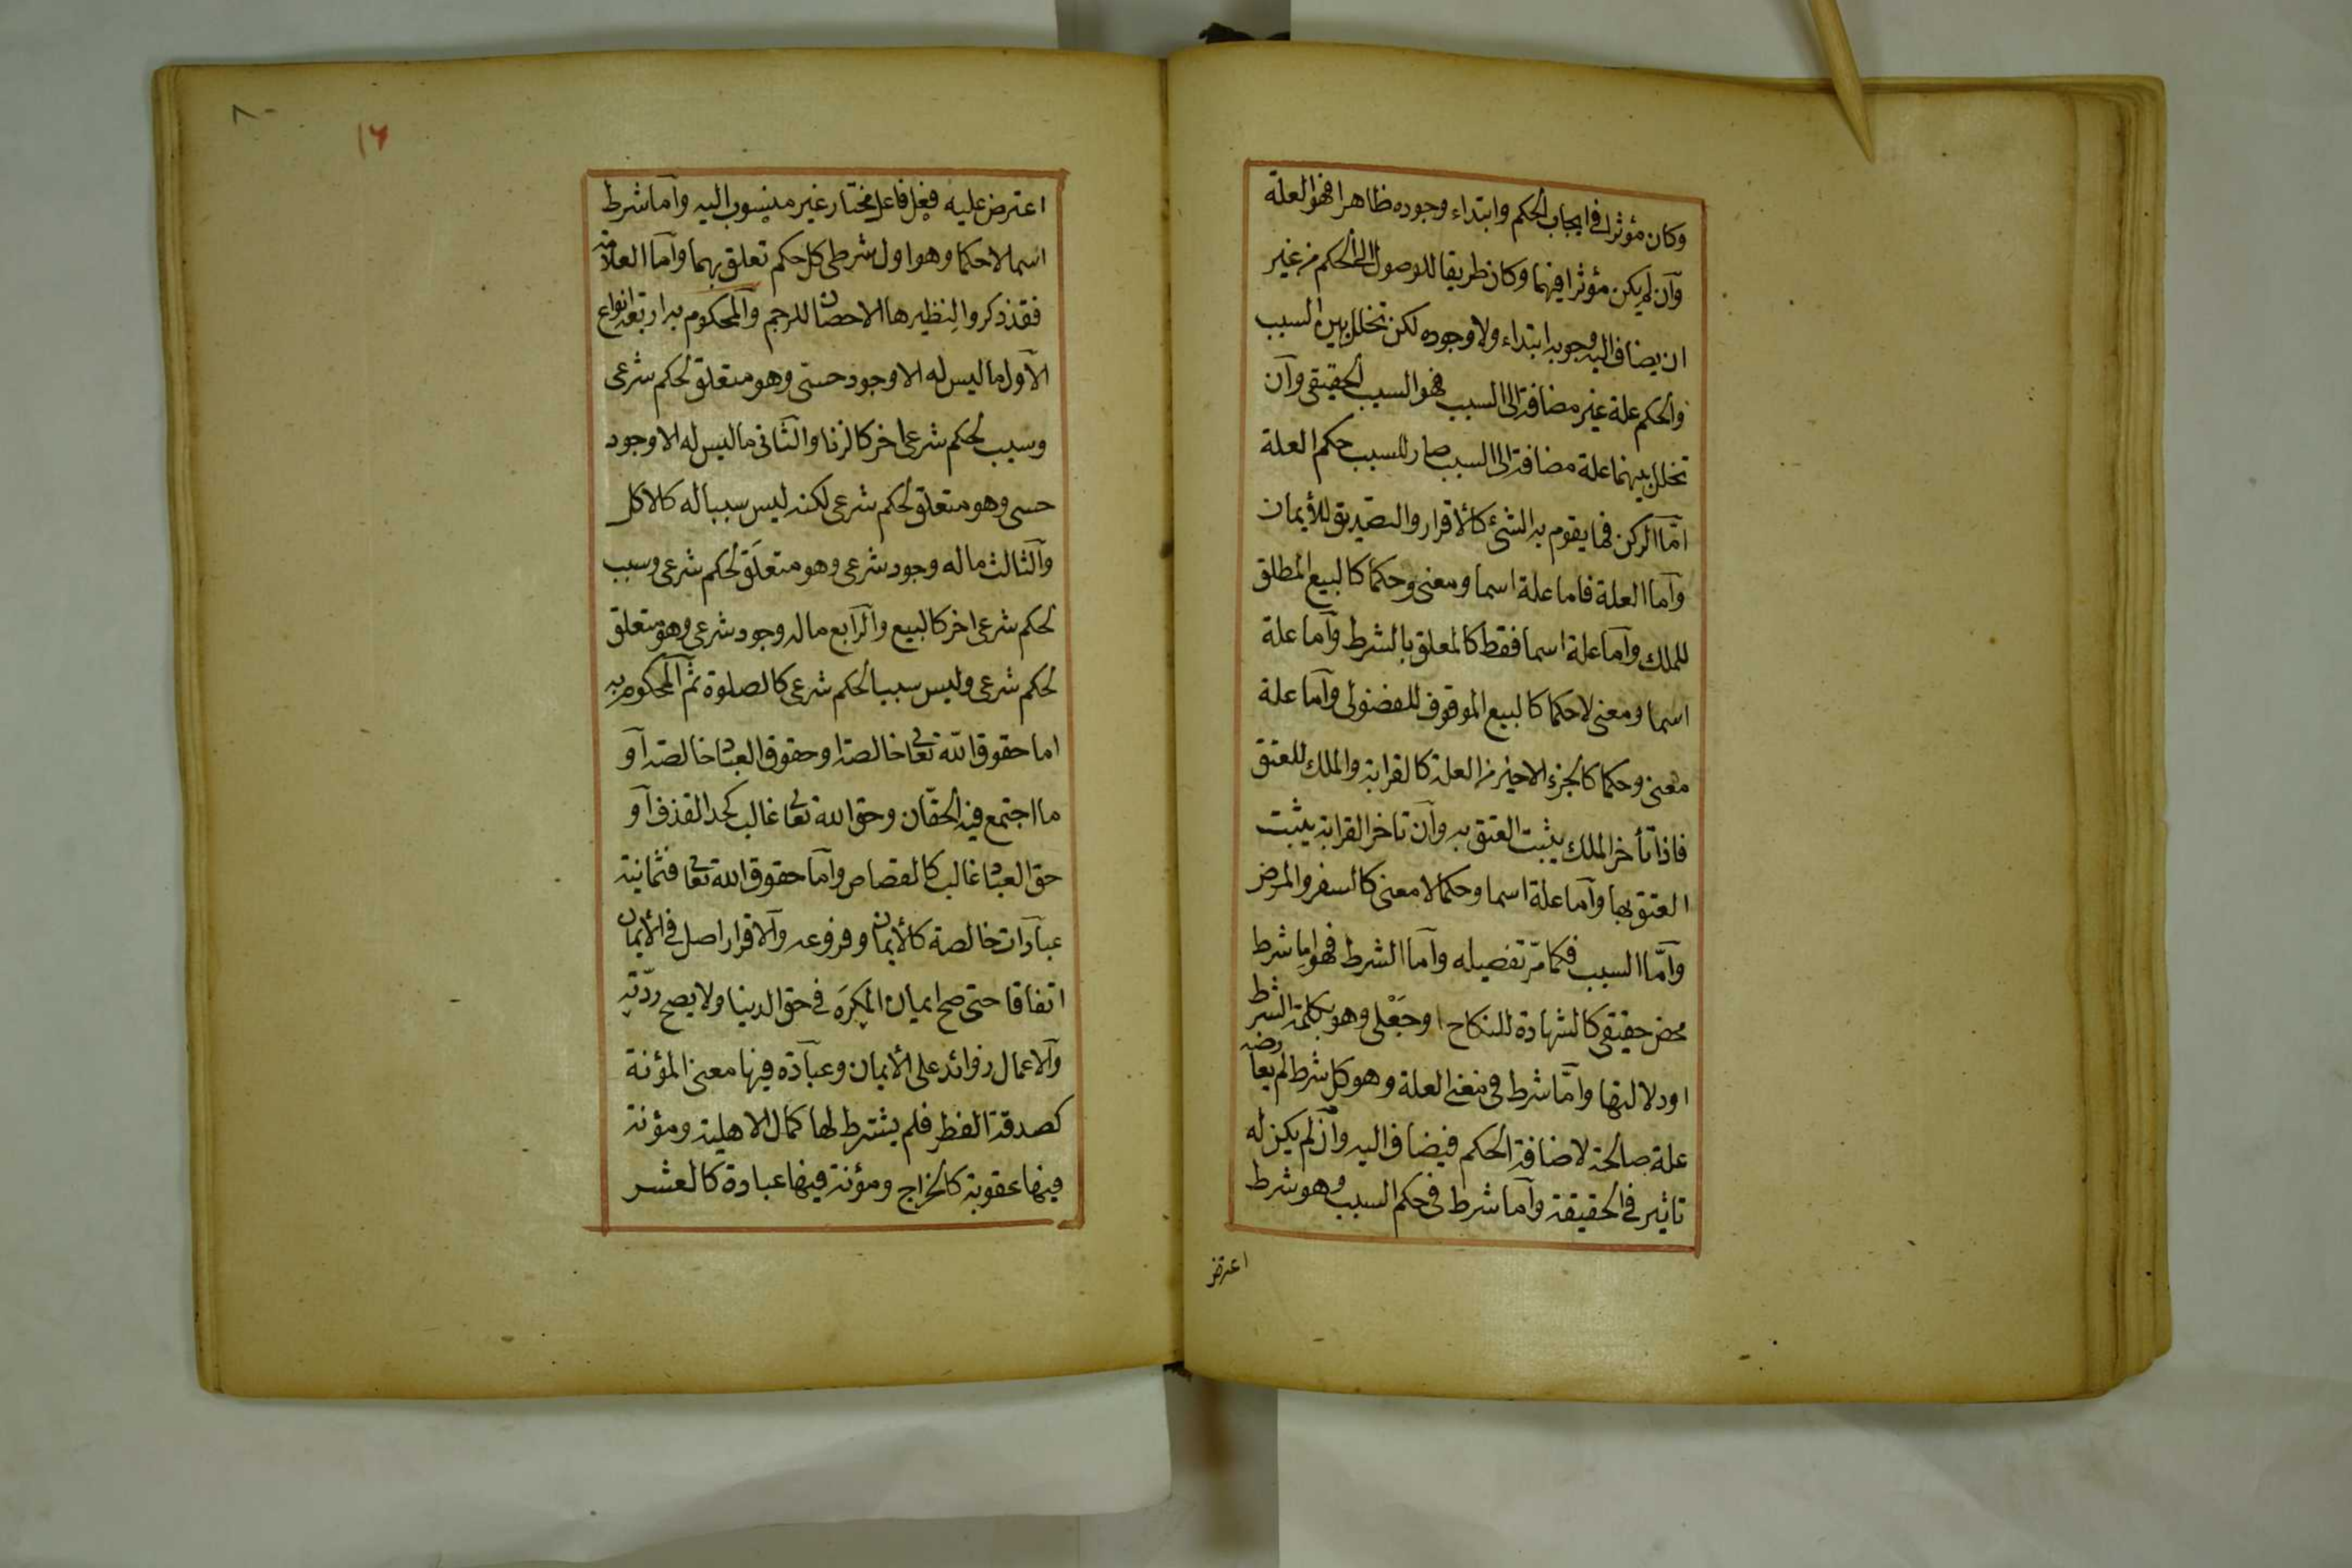 وكان مؤثرا في ايجاب الحكم وابتداء وجوده ظاهرا فهو العلة
وآن لم يكن مؤثرا فيهما وكان طريقا للوصول الى الحكم من غير
ان يضاف اليه وجوبه ابتداء ولا وجوده لكن تخلل بين السبب
والحكم علة غير مضافة الى السبب فهو السبب الحقيقى وآن
تخلل بينهما علة مضافة الى السبب صار للسبب حكم العلة
امّا الركن فما يقوم به الشئ كالأقرار والتصديق للأيمان
وآما العلة فاما علة اسما ومعنى وحكما كالبيع المطلق
للملك وآما علة اسما فقط كالمعلق بالشرط وآما علة
اسما ومعنى لا حكما كالبيع الموقوف للفضولى وآما علة
معنى وحكما كالجزء الاخير من العلة كالقرابة والملك للعتق
فاذا تأخر الملك يثبت العتق به وآن تاخر القرابة يثبت
العتق بها وآما علة اسما وحكما لا معنى كالسفر والمرض
وآمّا السبب فكما مرّ تفصيله وآما الشرط فهو اما شرط
محض حقيقى كالشهادة للنكاح او جَعْلى وهو بكلمة الشرط
او دلالتها وامّا شرط فى معنى العلة وهو كل شرط لم يعارضه
علة صالحة لاضافة الحكم فيضاف اليه وآن لم يكن له
تاثير فى الحقيقة وآما شرط فى حكم السبب وهو شرط
اعترض
٨٠
١٦
اعترض عليه فعل فاعل مختار غير منسوب اليه وآما شرط
اسما لا حكما وهو اول شرطى كل حكم تعلق بهما وآما العلامة
فقد ذكروا لنظيرها الاحصان للرجم والمحكوم به اربعة انواع
الآول ما ليس له الا وجود حسىّ وهو متعلق لحكم شرعى
وسبب لحكم شرعى اخر كالزنا والثانى ما ليس له الا وجود
حسى وهو متعلق لحكم شرعى لكنه ليس سببا له كالاكل
وآلثالث ما له وجود شرعى وهو متعلَق لحكم شرعى وسبب
لحكم شرعى اخر كالبيع وآلرابع ما له وجود شرعى وهو متعلق
لحكم شرعى وليس سببا لحكم شرعى كالصلوة ثم المحكوم به
اما حقوق الله تعا خالصة او حقوق العباد خالصة آو
ما اجتمع فيه الحقّان وحق الله تعا غالب كحد القذف آو
حق العباد غالب كالقصاص وآما حقوق الله تعا فثمانية
عبادات خالصة كالأيمان وفروعه وآلاقرار اصل فى الأيمان
اتفاقا حتى صح ايمان المكرَه فى حق الدنيا ولا يصح ردّته
وآلاعمال زوائد على الأيمان وعبآدة فيها معنى المؤنة
كصدقة الفطر فلم يشترط لها كمال الاهلية ومؤنة
فيها عقوبة كالخراج ومؤنة فيها عبادة كالعشر